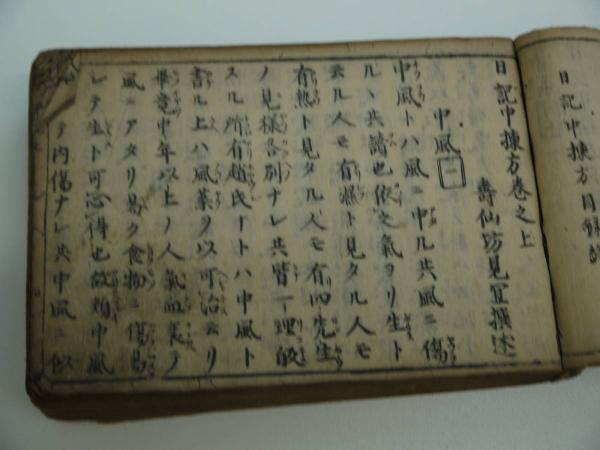 日記中揀方巻之上
壽仙坊見宜撰述
中風 一
中風トハ風ニ中ル共風ニ傷
ルヽ共諸也依之氣ヨリ生ト
云ル人モ有濕ト見タル人モ
有熱ト見タル人モ有四先生
ノ見様各別ナレ共皆一理
スル所有趙氏ナトハ中風ト
書ル上ハ風薬ヲ以可治云リ
畢竟中年以上ノ人氣血衰テ
風ニアタリ易ク食物ニ傷易
レテ生ト可心得也故類中風
テ内傷ナレ共中風ニ似
日記中揀方目録